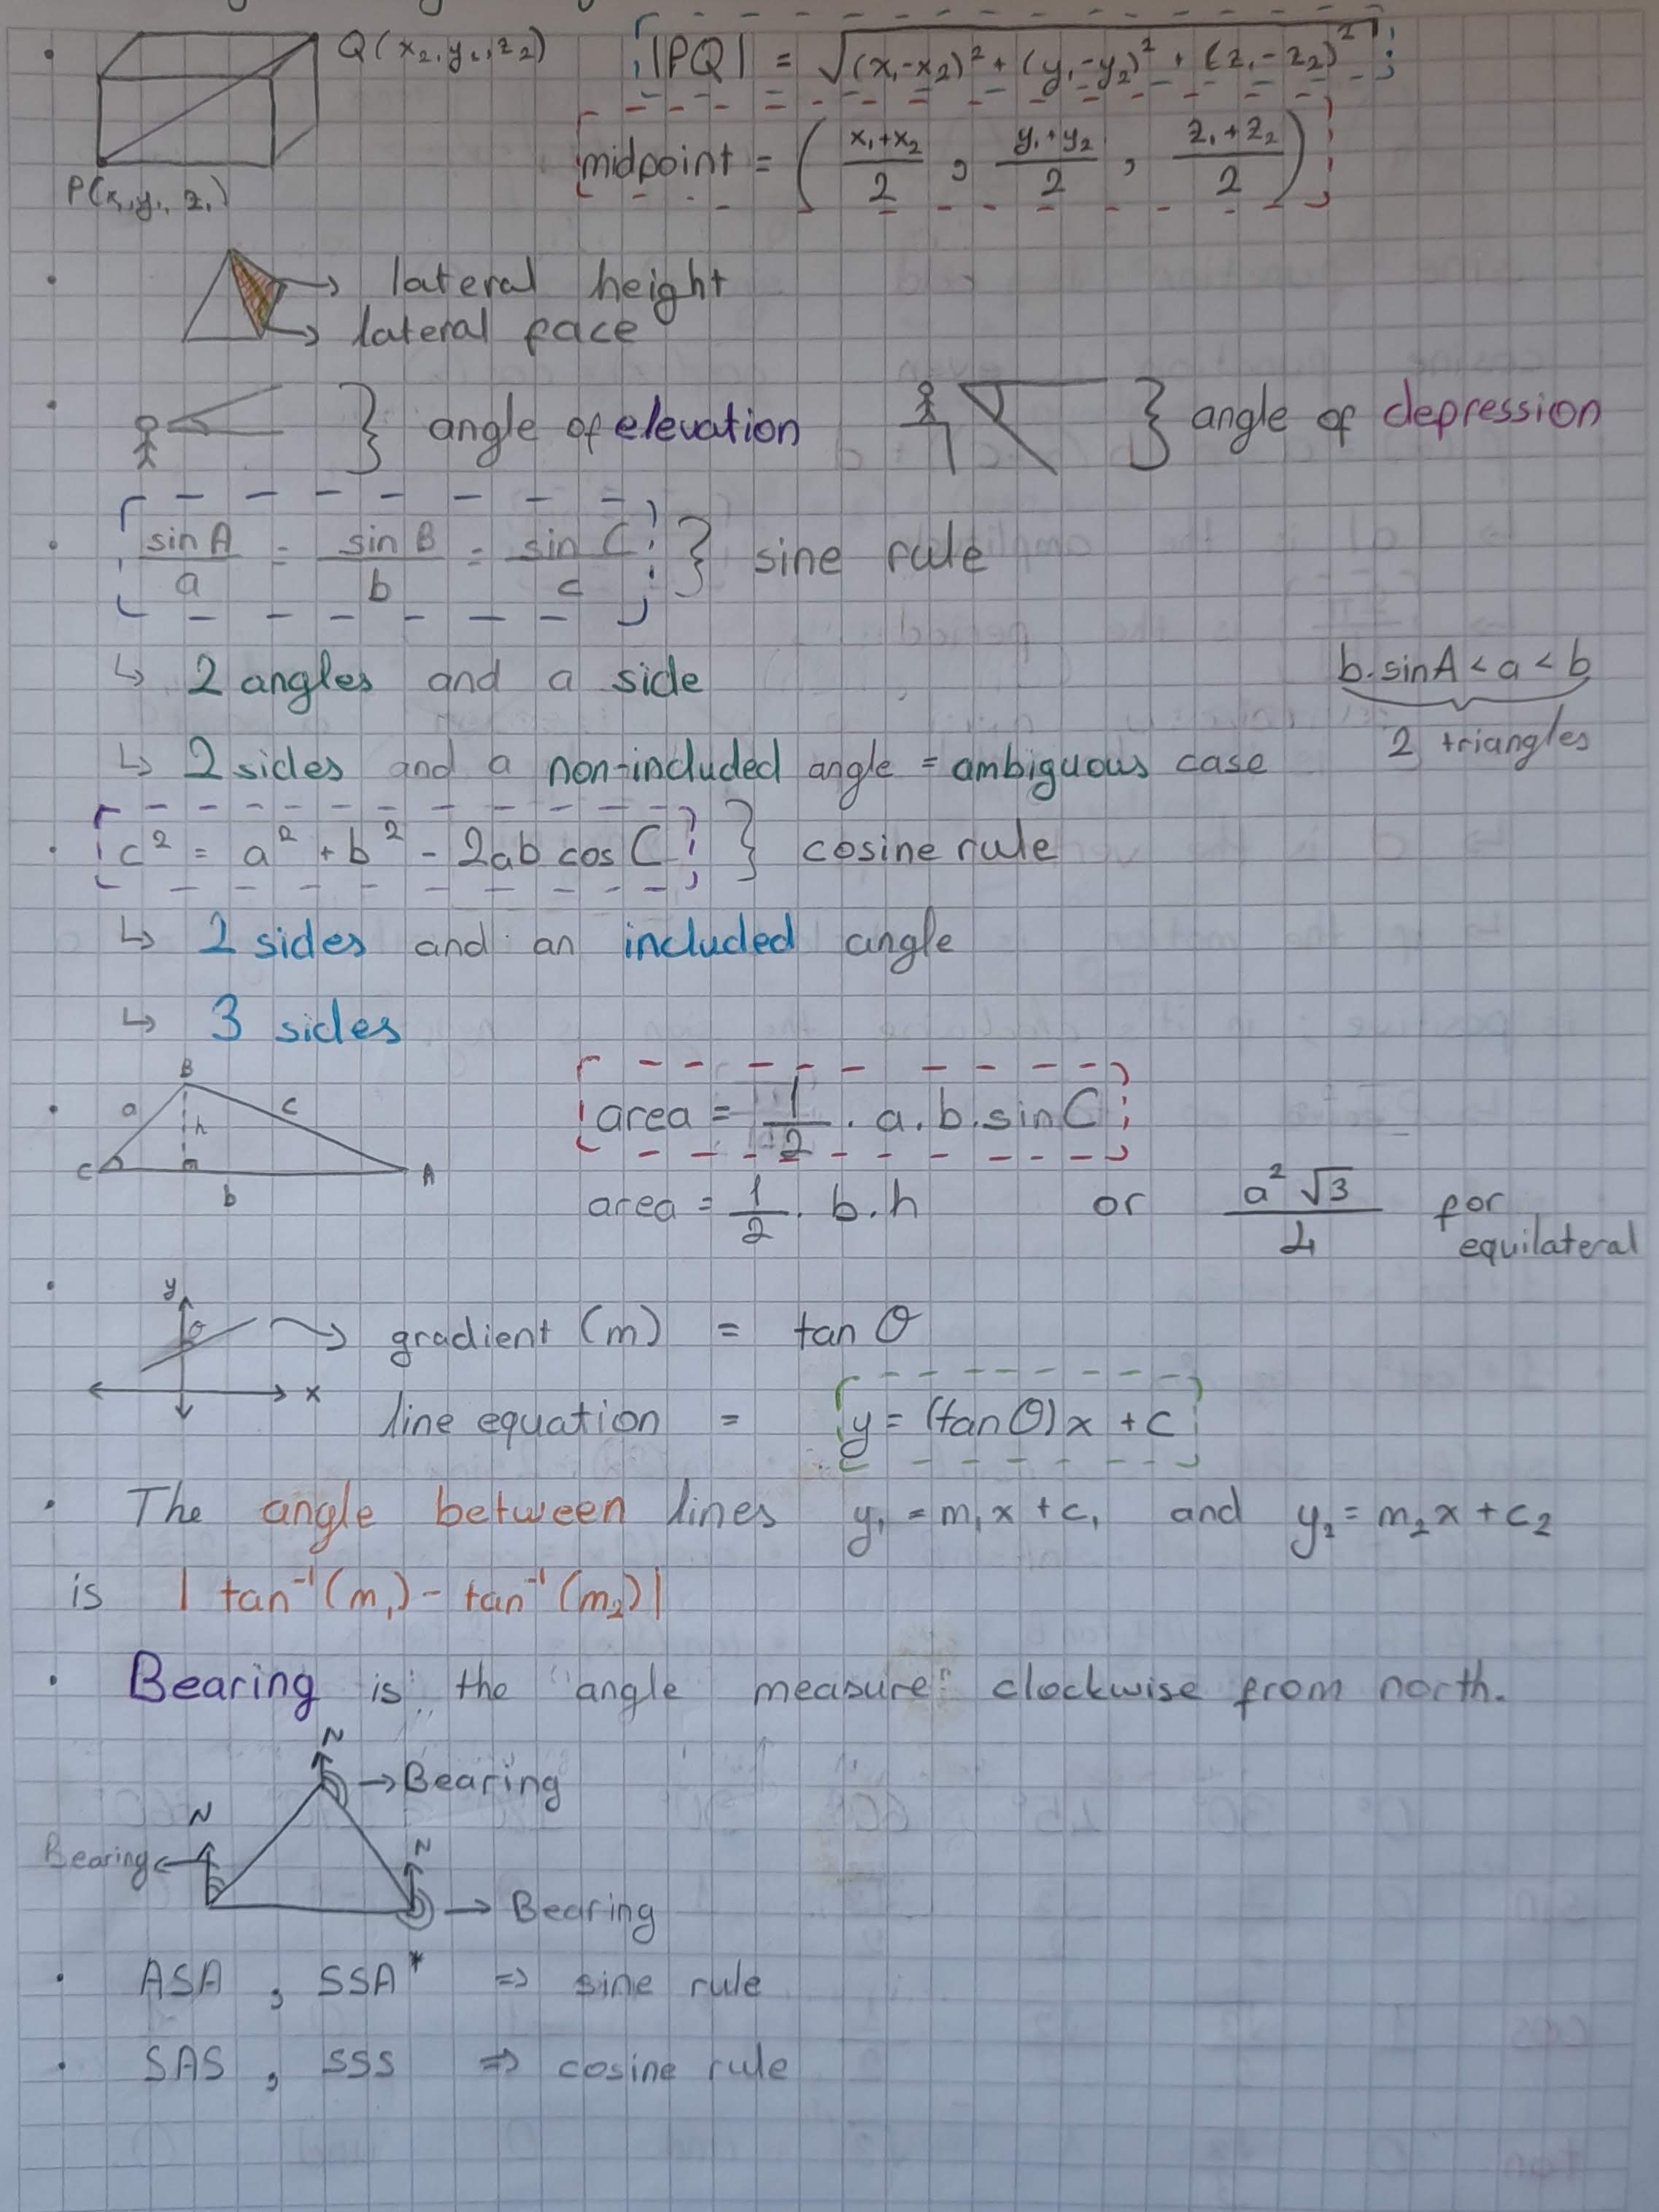 Q(x₂, y₂, z₂)
|PQ| = √((x₁-x₂)² + (y₁-y₂)² + (z₁-z₂)²)
midpoint = ( (x₁+x₂)/2 , (y₁+y₂)/2 , (z₁+z₂)/2 )
P(x₁, y₁, z₁)
→ lateral height
→ lateral face
} angle of elevation
} angle of depression
sin A / a = sin B / b = sin C / c } sine rule
↳ 2 angles and a side
b.sinA < a < b
2 triangles
↳ 2 sides and a non-included angle = ambiguous case
c² = a² + b² - 2ab cos C } cosine rule
↳ 2 sides and an included angle
↳ 3 sides
B
a
c
h
C
A
b
area = 1/2 . a. b. sin C
area = 1/2 . b. h or a²√3 / 4 for equilateral
y
θ
x
→ gradient (m) = tan θ
line equation = y = (tan θ) x + c
• The angle between lines y₁ = m₁x + c₁ and y₂ = m₂x + c₂
is | tan⁻¹ (m₁) - tan⁻¹ (m₂)|
• Bearing is the angle measure clockwise from north.
N
→ Bearing
N
Bearing ←
N
→ Bearing
• ASA , SSA* ⇒ sine rule
• SAS , SSS ⇒ cosine rule